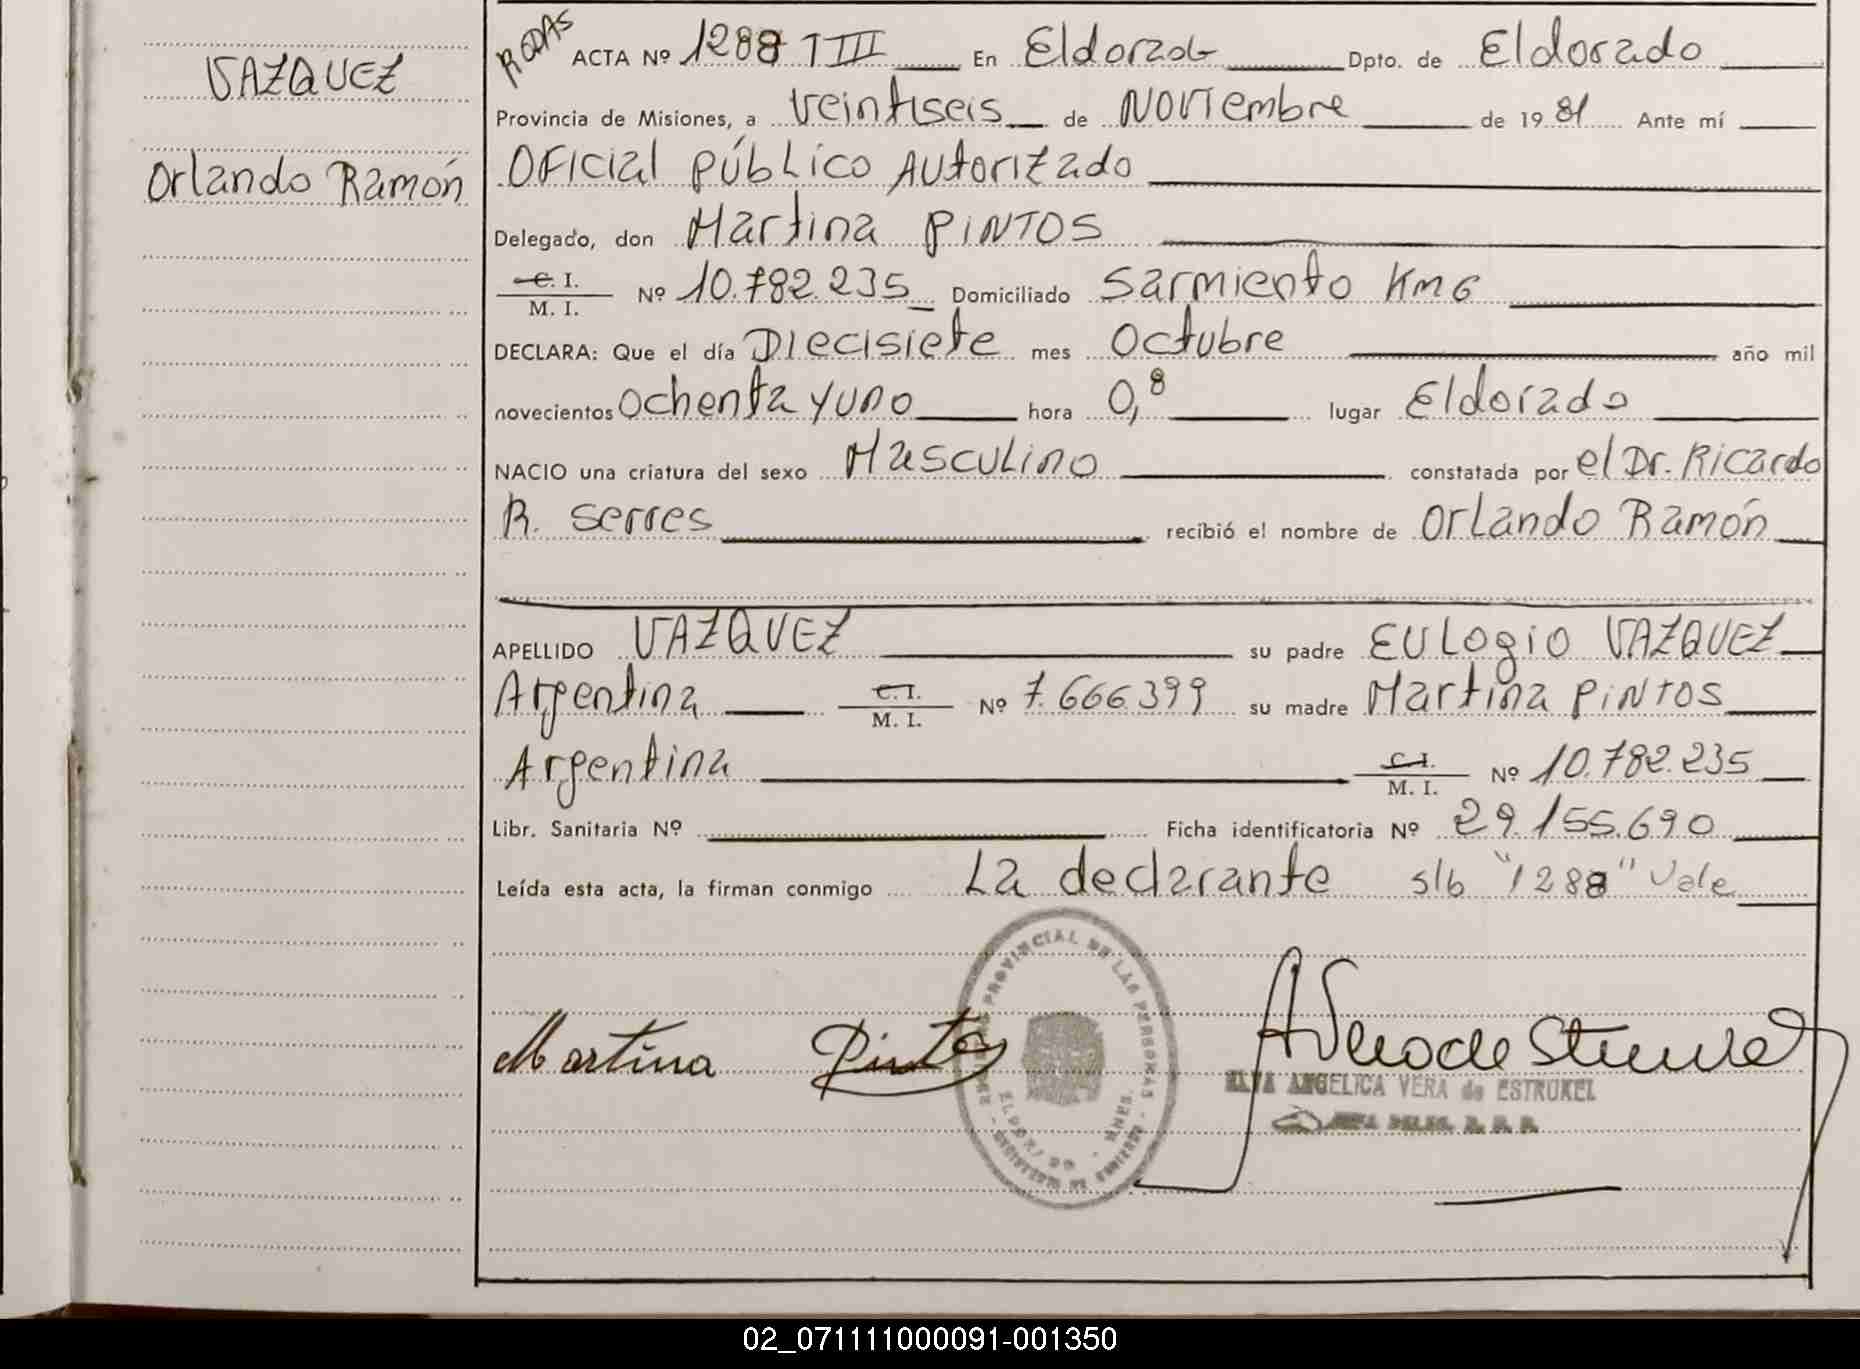 VAZQUEZ
Orlando Ramón
RODAS
ACTA Nº 1288 T III En Eldorado Dpto. de Eldorado
Provincia de Misiones, a veintiseis de NOVIembre de 1981 Ante mí
OFICIAL PÚBLICO AUtorizado
Delegado, don Martina PINTOS
C. I.
M. I. Nº 10.782.235 Domiciliado Sarmiento Km 6
DECLARA: Que el día Diecisiete mes Octubre año mil
novecientos ochenta y uno hora 0,8 lugar Eldorado
NACIO una criatura del sexo Masculino constatada por el Dr. Ricardo
R. Serres recibió el nombre de Orlando Ramón
APELLIDO VAZQUEZ su padre EULOGIO VAZQUEZ
Argentina C. I.
M. I. Nº 7.666.399 su madre Martina PINTOS
Argentina C. I.
M. I. Nº 10.782.235
Libr. Sanitaria Nº Ficha identificatoria Nº 29.155.690
Leída esta acta, la firman conmigo La declarante s/b "1288" Vale
PROVINCIAL DE LAS PERSONAS
Martina Pintos
ELVA ANGELICA VERA de ESTRUKEL
02_071111000091-001350